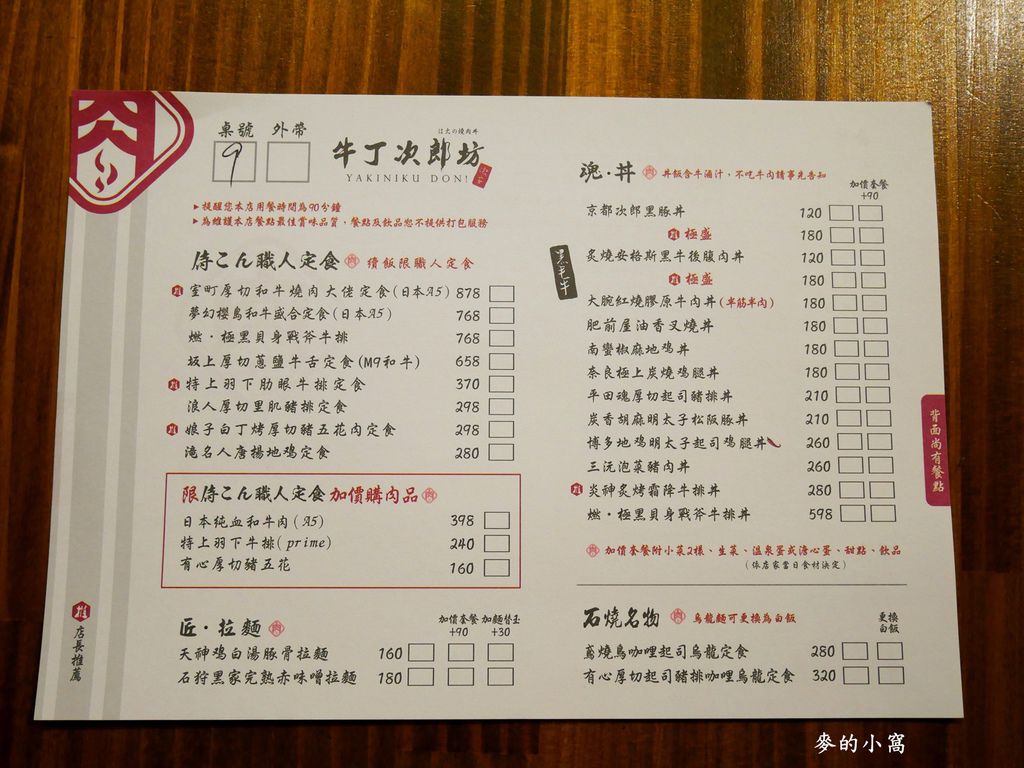 桌號 外帶
9
は火の燒肉丼
牛丁次郎坊
YAKINIKU DON!
▸提醒您本店用餐時間為90分鐘
▸為維護本店餐點最佳賞味品質，餐點及飲品恕不提供打包服務
侍こん職人定食 續飯限職人定食
推 室町厚切和牛燒肉大佬定食(日本A5) 878
夢幻櫻島和牛盛合定食(日本A5) 768
燃・極黑貝身戰斧牛排 768
坂上厚切蔥鹽牛舌定食(M9和牛) 658
推 特上羽下肋眼牛排定食 370
浪人厚切里肌豬排定食 298
推 娘子白丁烤厚切豬五花肉定食 298
滝名人唐揚地鸡定食 280
限侍こん職人定食 加價購肉品
日本純血和牛肉(A5) 398
特上羽下牛排(prime) 240
有心厚切豬五花 160
匠・拉麵
加價套餐 加麵替玉
+90 +30
天神鸡白湯豚骨拉麵 160
石狩黑家完熟赤味噌拉麵 180
推 店長推薦
魂・丼 丼飯含牛滷汁，不吃牛肉請事先告知
加價套餐
+90
京都次郎黑豚丼 120
推 極盛 180
黑毛牛
炙燒安格斯黑牛後腹肉丼 120
推 極盛 180
大腕紅燒膠原牛肉丼(半筋半肉) 180
肥前屋油香叉燒丼 180
南蠻椒麻地鸡丼 180
奈良極上炭燒鸡腿丼 180
平田魂厚切起司豬排丼 210
炭香胡麻明太子松阪豚丼 210
博多地鸡明太子起司鸡腿丼 260
三沅泡菜豬肉丼 260
推 炎神炙烤霜降牛排丼 280
燃・極黑貝身戰斧牛排丼 598
加價套餐附小菜2樣、生菜、溫泉蛋或溏心蛋、甜點、飲品
(依店家當日食材決定)
背面尚有餐點
石燒名物 烏龍麵可更換為白飯
更換
白飯
鳶燒鳥咖哩起司烏龍定食 280
有心厚切起司豬排咖哩烏龍定食 320
麥的小窩